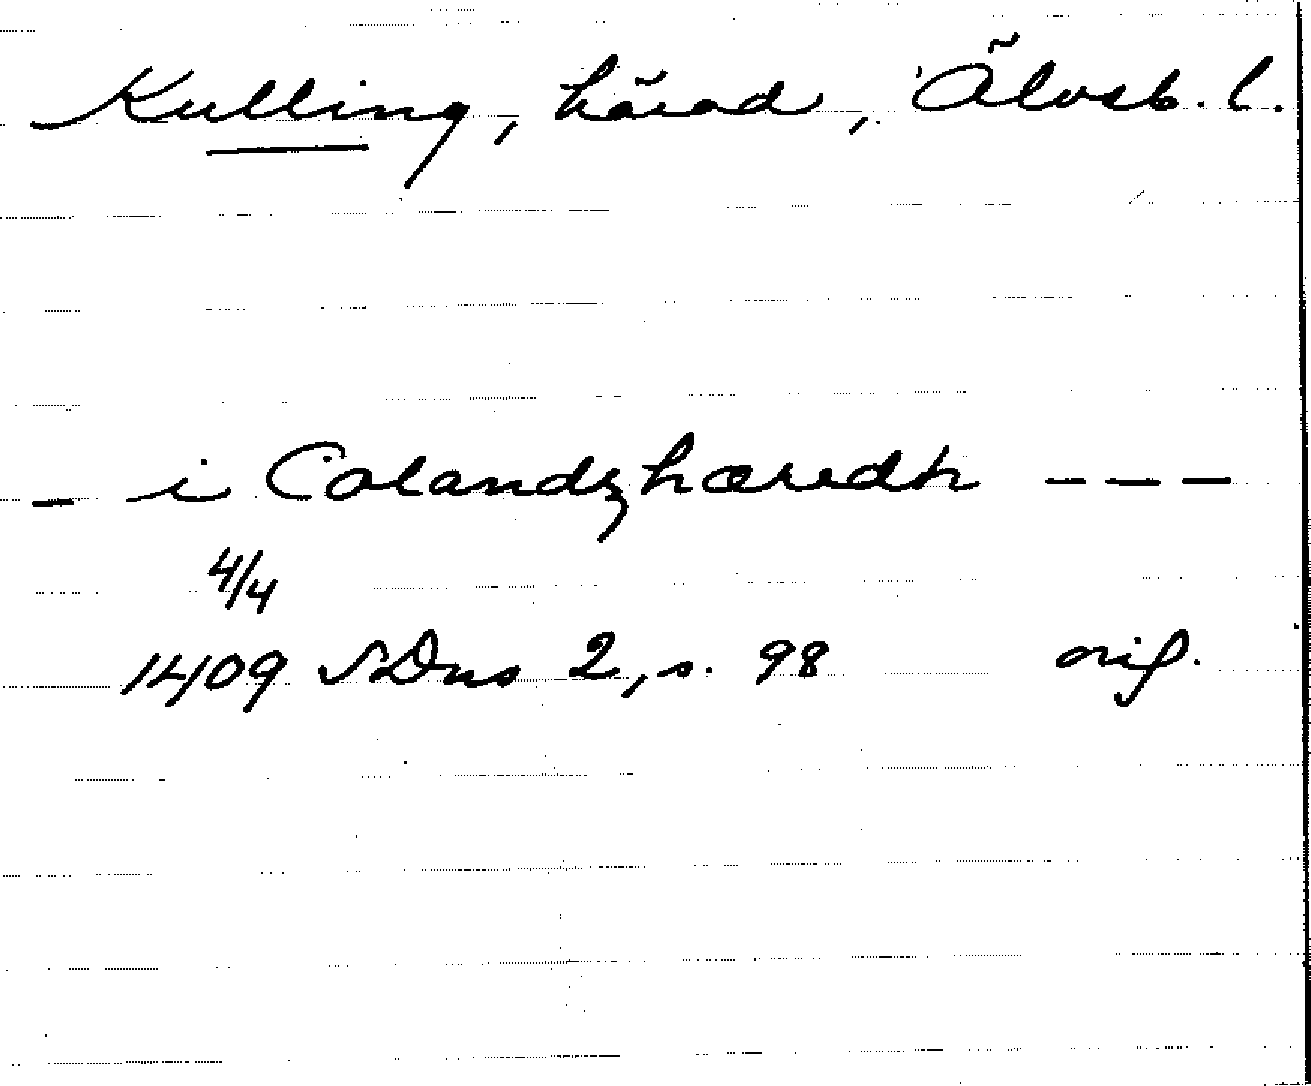 Kulling, härad, Älvsb. l.
- i Colandzhæredh ---
4/4
1409 SDns 2, s. 98 orig.